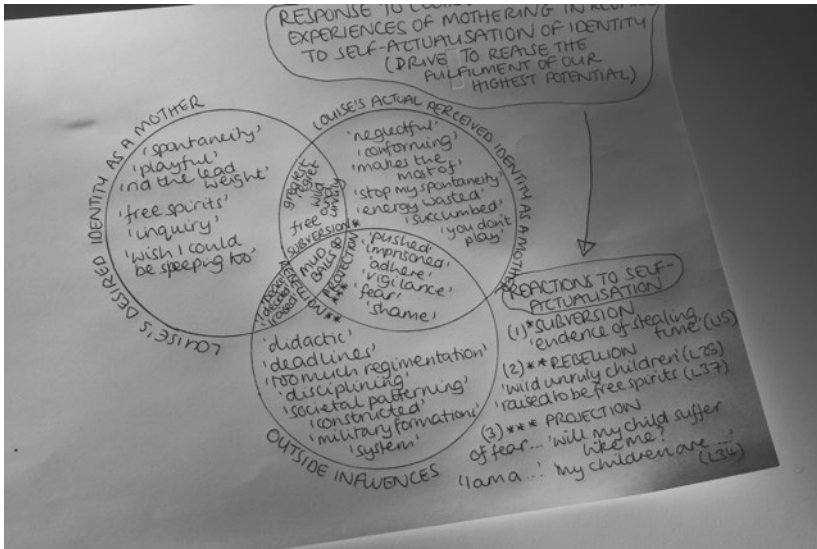 RESPONSE TO
EXPERIENCES OF MOTHERING IN
TO SELF-ACTUALISATION OF IDENTITY
(DRIVE TO REALISE THE
FULFILMENT OF OUR
HIGHEST POTENTIAL)
LOUISE'S DESIRED IDENTITY AS A MOTHER
'spontaneity'
'playful'
'nd the lead
weight'
'free spirits'
'inquiry'
'wish I could
be sleeping too'
LOUISE'S ACTUAL PERCEIVED IDENTITY AS A MOTHER
'neglectful'
'conforming'
'makes the
most of'
'stop my spontaneity'
'energy wasted'
'succumbed'
'you don't
play'
greatest
regret
wild
unruly
free
SUBVERSION*
MUD
BALLS
PROJECTION
***
REBELLION**
raised
'pushed'
'imprisoned'
'adhere'
'vigilance'
'fear'
'shame'
'didactic'
'deadlines'
'too much regimentation'
'disciplining'
'societal patterning'
'constructed'
'military formations'
'system'
OUTSIDE INFLUENCES
REACTIONS TO SELF-
ACTUALISATION
(1)* SUBVERSION
'evidence of stealing
time' (L15)
(2)** REBELLION
'wild unruly children' (L25)
'raised to be free spirits' (L37)
(3)*** PROJECTION
of fear... 'will my child suffer
like me?'
'I am a...' 'my children are...'
(L34)